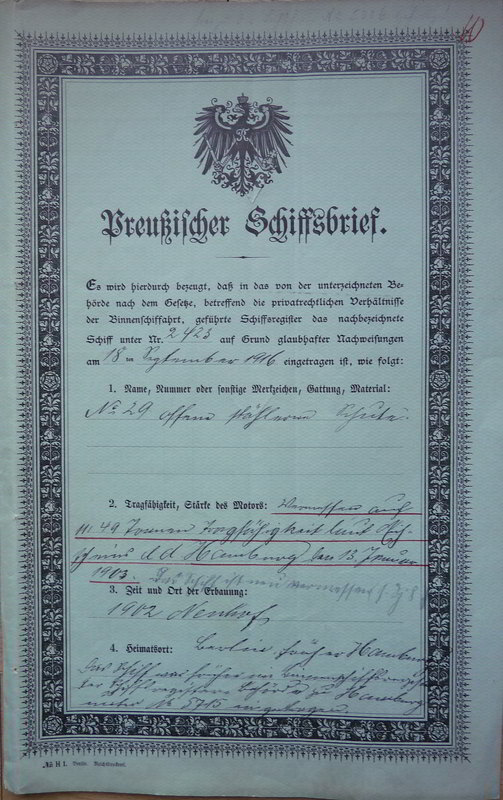 Preußischer Schiffsbrief.
Es wird hierdurch bezeugt, daß in das von der unterzeichneten Be-
hörde nach dem Gesetze, betreffend die privatrechtlichen Verhältnisse
der Binnenschiffahrt, geführte Schiffsregister das nachbezeichnete
Schiff unter Nr. 2423 auf Grund glaubhafter Nachweisungen
am 18ten September 1916 eingetragen ist, wie folgt:
1. Name, Nummer oder sonstige Merkzeichen, Gattung, Material:
No 29 offene stählerne Schute
2. Tragfähigkeit, Stärke des Motors: Vermessen auf
49 Tonnen Tragfähigkeit laut
d.d. Hamburg den 13. Januar
1903. Das Schiff ist neu vermessen
3. Zeit und Ort der Erbauung:
1902
4. Heimatsort: Berlin früher Hamburg
Das Schiff war früher im
Hamburg
unter No eingetragen.
No H I. Berlin. Reichsdruckerei.